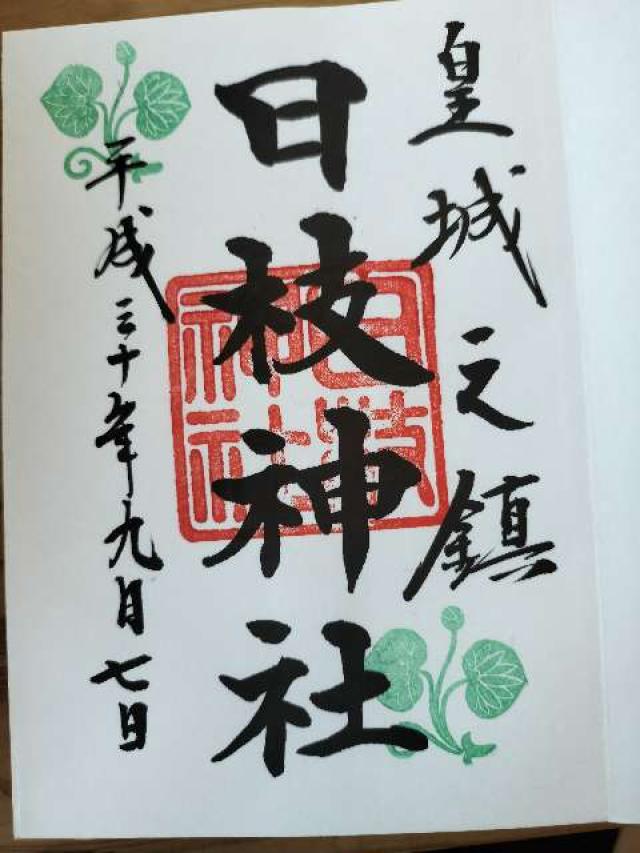 皇城之鎮
日枝神社
日枝神社
平成三十年九月七日